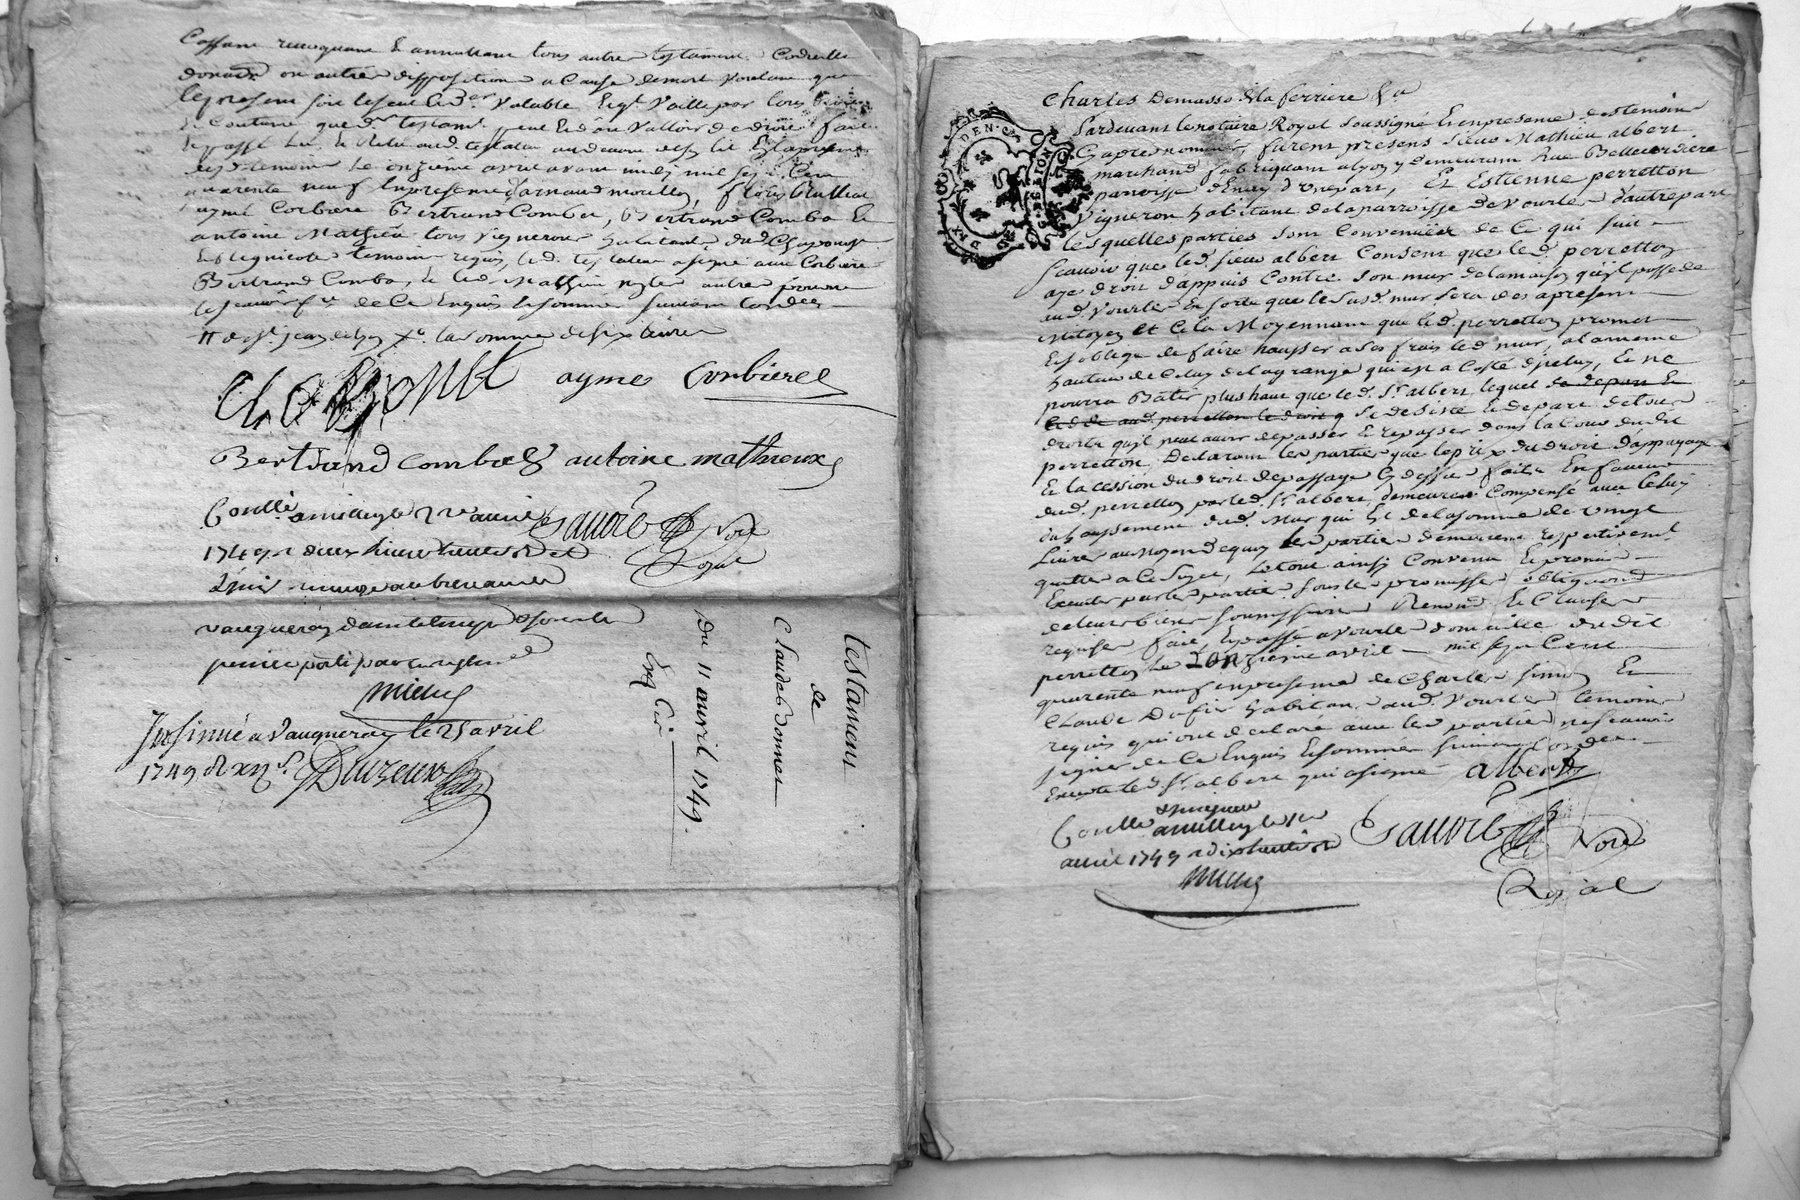 Cassant revoquant et annullant tous autres testament Codicille
donation ou autres disposition a Cause de mort voulant que
le present soit le seul et dr valable
et Coutume que dt testament peut et doit valloir de droit fait
et passé
et temoin le onzieme avril avant midy mil sept Cent
quarente neuf En presence d'arnaud
aymé Corbiere Bertrand Combet, Bertrand Combe et
antoine Mathieu tous vignerons habitants dud Chaponost
temoins requis, led. testateur a signé avec Corbiere
Bertrand Combe, et led. Mathieu autres pour ne
le scavoir fe. de Ce Enquis et sommé suivant lordce
la somme de six livres
aymes Corbiere
Bertrand Combe antoine mathieux
Conllé a le avril
1749 a deux livres
Sauvre No.re
Royal
vaugneray
Insinué a Vaugneray le 25 avril
1749 R xij s.
testament
de
Claude Donnet
Du 11 avril 1749.
Charles Demasso de la ferriere &a
Pardevant le notaire Royal soussigné En presence des temoins
Cy apres nommés, furent presens Sieur Mathieu albert
marchand fabriquant a lyon y demeurant Rue Bellecordiere
paroisse d'Enay d'Une part, Et Estienne perretton
Vigneron habitant de la parroisse de Vourles d'autre part
lesquelles parties sont Convenües de Ce qui suit
scavoir que led. sieur albert Consent que led. perretton
aye droit d'appuis Contre son mur de la maison qu'il possede
aud. Vourles En sorte que le susd. mur sera des apresent
Mitoyen et Cela Moyennant que led. perretton promet
Et s'oblige de faire hausser a ses frais led. mur, a la meme
hauteur de Celuy de la grange qui est a Costé d'iceluy, et ne
pourra Bâtir plus haut que led. Sr. albert, lequel de depart Et
aud. perretton le droit se desiste et depart de tous
droits qu'il peut avoir de passer Et repasser dans la Cour dudit
perretton, Declarant les parties que le prix du droit d'appuyage
Et la Cession du droit de passage Cy dessus faite En faveur
dud. perretton par led. Sr. albert, demeurent Compensé avec Celuy
du haussement dud. Mur qui Est de la somme de vingt
Livres au moyen de quoy les parties demeurent respectivemt.
quittes a Ce Sujet, Le tout ainsi Convenu Et promis
Executer par les parties sous les promisses obligaons
de leurs biens soumissions Renonc. Et Clauses
requises fait Et passé a Vourles domicille dudit
perretton Le onzieme avril mil sept Cent
quarente neuf en presence de Charles Et
Claude habitans aud. Vourles temoins
requis qui ont declaré avec les parties ne scavoir
signer de Ce Enquis Et sommés suivant Lordce
Excepté led. Sr. albert qui a signé albert
Conllé
avril 1749
Sauvre No.re
Royal